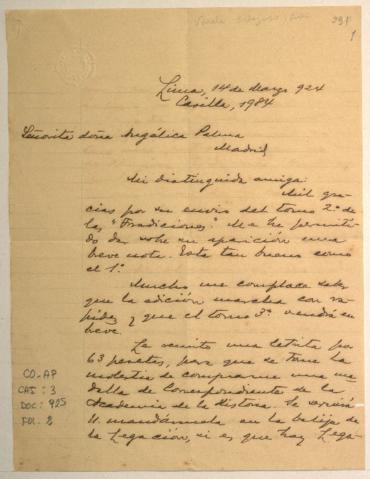 231
1
Lima, 14 de Marzo 924
Casilla, 1984
Señorita doña Angélica Palma
Madrid
Mi distinguida amiga:
Mil gra-
cias por su envio del tomo 2º de
las "Tradiciones". Me he permiti-
do dar sobre su aparición una
breve nota. Está tan bueno como
el 1º.
Mucho me complace saber
que la edición marcha con ra-
pidez y que el tomo 3º vendrá en
breve.
Le remito una letrita por
63 pesetas, para que se tome la
molestia de comprarme una me-
dalla de Correspondiente de la
Academia de la Historia. Se servirá
U. mandármela en la balija de
la Legación, si es que hay Lega-
CO-AP
CAJ : 3
DOC : 925
FOL. 2